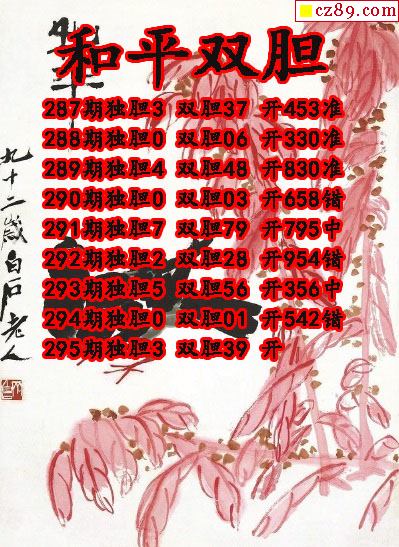 cz89.com
和平双胆
287期独胆3 双胆37 开453准
288期独胆0 双胆06 开330准
289期独胆4 双胆48 开830准
290期独胆0 双胆03 开658错
291期独胆7 双胆79 开795中
292期独胆2 双胆28 开954错
293期独胆5 双胆56 开356中
294期独胆0 双胆01 开542错
295期独胆3 双胆39 开
九十二岁白石老人